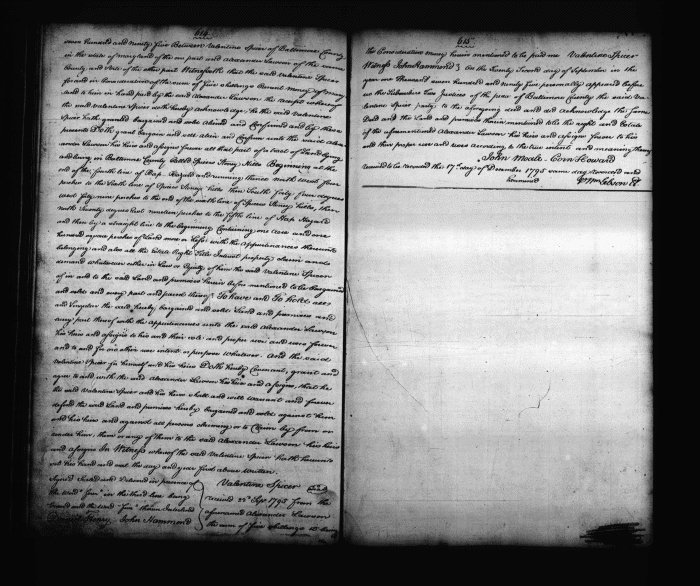 614
seven hundred and ninety five Between Valentine Spicer of Baltimore County
in the state of maryland of the one part and Alexander Lawson of the same
County and State of the other part Witnesseth that the said Valentine Spicer
for and in Consideration of the sum of five shillings Current money of mary
land to him in hand paid by the said Alexander Lawson the receipt whereof
the said Valentine Spicer doth hereby acknowledge, He the said Valentine
Spicer hath granted bargained and sold aliened and Confirmed and by these
presents Doth grant bargain and sell alien and Confirm unto the said Alex
ander Lawson his heirs and assigns forever all that part of a tract of Land lying
and being in Baltimore County Called Spicers Stoney Hills Beginning at the
end of the fourth line of and running thence north west four
perches to the Tenth line of Spicers Stoney hills then South forty four degrees
West forty nine perches to the end of the ninth line of Spicers Stoney hills, then
north Seventy degrees East nineteen perches to the fifth line of
and then by a straight line to the beginning Containing one acre and one
hundred square perches of Land more or less with the appurtenances thereunto
belonging and also all the Estate Right Title Interest property claim and
demand whatsoever either in Law or Equity of him the said Valentine Spicer
of in and to the said Land and premises herein before mentioned to be bargained
and sold and every part and parcel thereof To have and To hold all
and Singular the said hereby bargained and sold Land and premises and
every part thereof with the appurtenances unto the said Alexander Lawson
his heirs and assigns to his and their sole and proper use and uses forever
and to and for no other use intent or purpose whatever. And the said
Valentine Spicer for himself and his heirs Doth hereby Covenant, grant and
agree to and with the said Alexander Lawson his heirs and assigns, that he
the said Valentine Spicer and his heirs shall and will warrant and forever
defend the said Land and premises hereby bargained and sold against him
and his heirs and against all persons claiming or to Claim by from or
under him, them or any of them to the said Alexander Lawson his heirs
and assigns In Witness whereof the said Valentine Spicer hath hereunto
set his hand and seal the day and year first above written.
Signed Sealed and Delivered in presence of
the word "four" in the third line being
erased and the word "five" therein Inserted
John Hammond
Valentine Spicer
received 22d Sept 1795 from the
aforenamed Alexander Lawson
the sum of five shillings it being
615
the Consideration money herein mentioned to be paid me Valentine Spicer
Witness John Hammond } On the Twenty Second day of September in the
year one Thousand seven hundred and ninety five personally appeared before
us the Subscribers two Justices of the peace of Baltimore County the said Va
lentine Spicer party to the aforegoing deed and did acknowledge the same
Deed and the Land and premises therein mentioned to be the right and Estate
of the aforenamed Alexander Lawson his heirs and assigns forever to his
and their proper use and uses according to the true intent and meaning thereof
John Moale Corn Howard
received to be recorded the 17th day of December 1795 same day recorded and
Examined
Wm Gibson